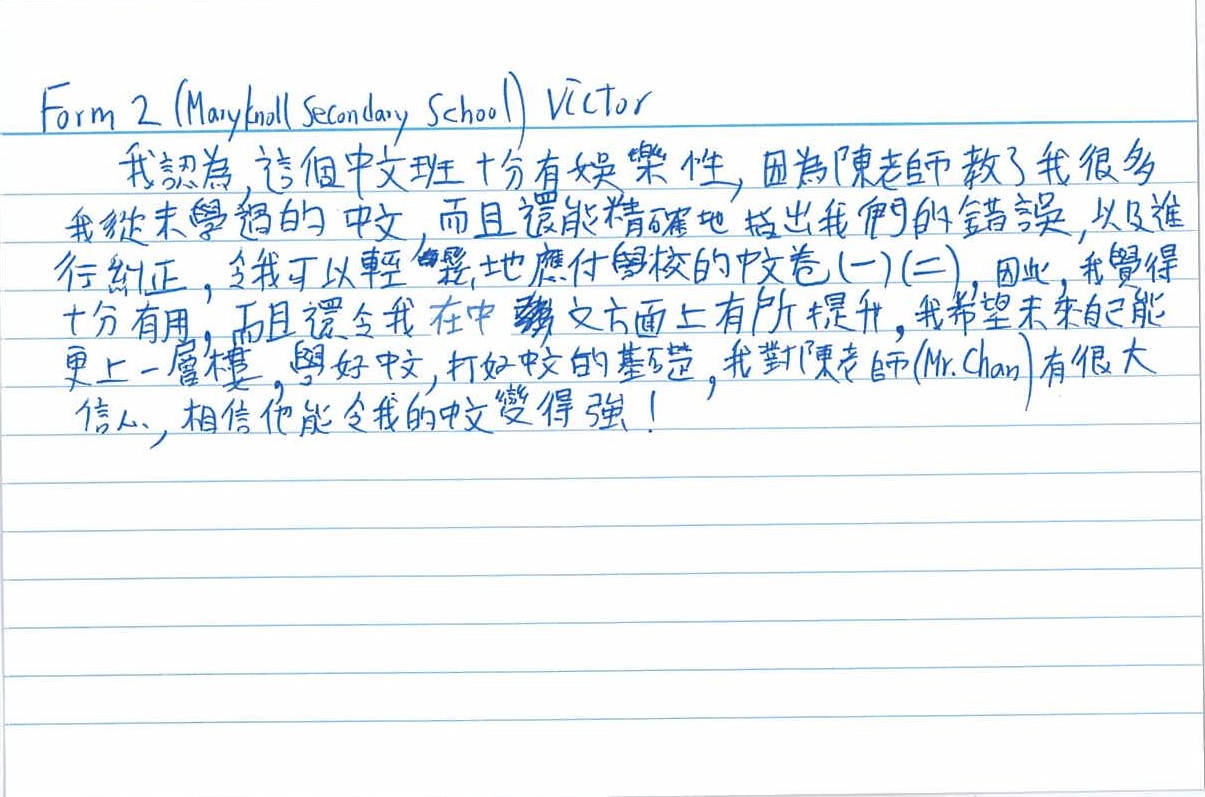 Form 2 (Maryknoll Secondary School) Victor
我認為,這個中文班十分有娛樂性,因為陳老師教了我很多
我從未學過的中文,而且還能精確地指出我們的錯誤,以及進
行糾正,令我可以輕鬆地應付學校的中文卷(一)(二),因此,我覺得
十分有用,而且還令我在中文方面上有所提升,我希望未來自己能
更上一層樓,學好中文,打好中文的基礎,我對陳老師(Mr.Chan)有很大
信心,相信他能令我的中文變得強!